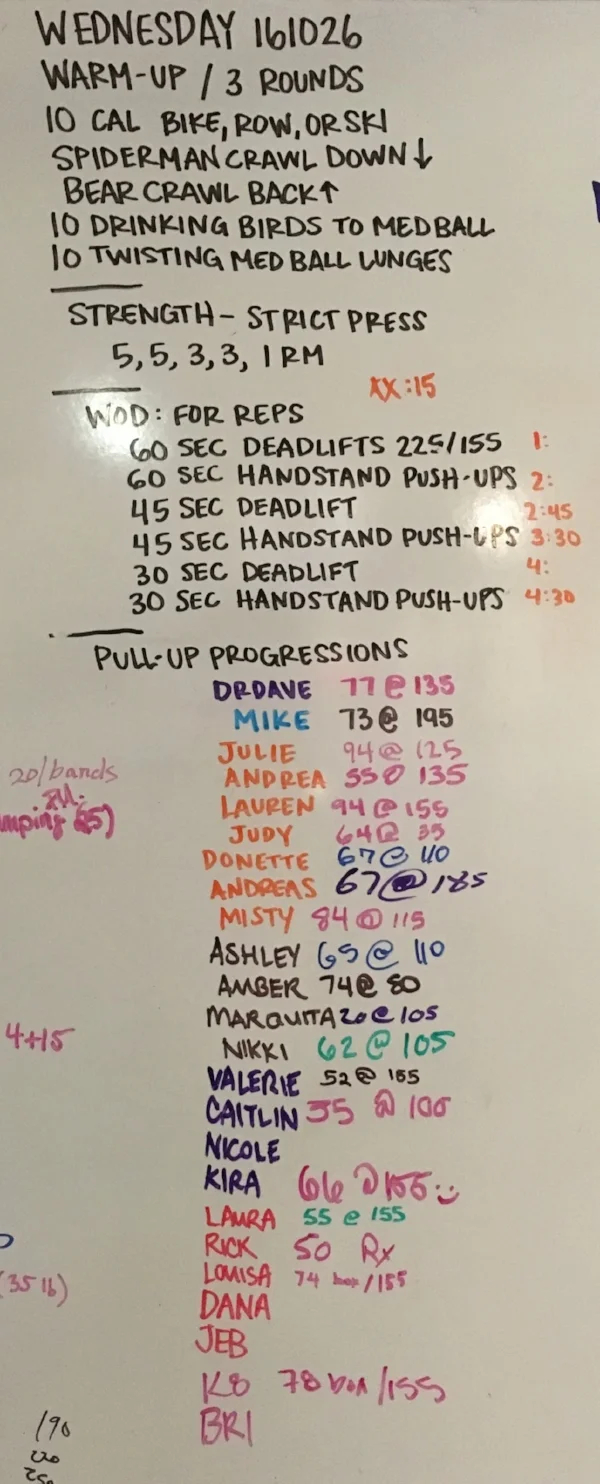 WEDNESDAY 161026
WARM-UP / 3 ROUNDS
10 CAL BIKE, ROW, OR SKI
SPIDERMAN CRAWL DOWN↓
BEAR CRAWL BACK↑
10 DRINKING BIRDS TO MEDBALL
10 TWISTING MED BALL LUNGES
STRENGTH - STRICT PRESS
5, 5, 3, 3, 1 RM
:15
WOD: FOR REPS
60 SEC DEADLIFTS 225/155 1:
60 SEC HANDSTAND PUSH-UPS 2:
45 SEC DEADLIFT 2:45
45 SEC HANDSTAND PUSH-UPS 3:30
30 SEC DEADLIFT 4:
30 SEC HANDSTAND PUSH-UPS 4:30
PULL-UP PROGRESSIONS
DRDAVE 77 @ 135
MIKE 73 @ 195
JULIE 94 @ 125
20/bands
ANDREA 55 @ 135
LAUREN 94 @ 155
JUDY 64 @ 35
DONETTE 67 @ 110
ANDREAS 67 @ 185
MISTY 84 @ 115
ASHLEY 65 @ 110
AMBER 74 @ 80
MARQUITA 20 @ 105
4+15
NIKKI 62 @ 105
VALERIE 52 @ 155
CAITLIN 35 @ 100
NICOLE
KIRA 66 @ 155
LAURA 55 @ 155
RICK 50 Rx
(35 lb)
LOUISA 74 /155
DANA
JEB
K8 78 box /155
BRI
/90